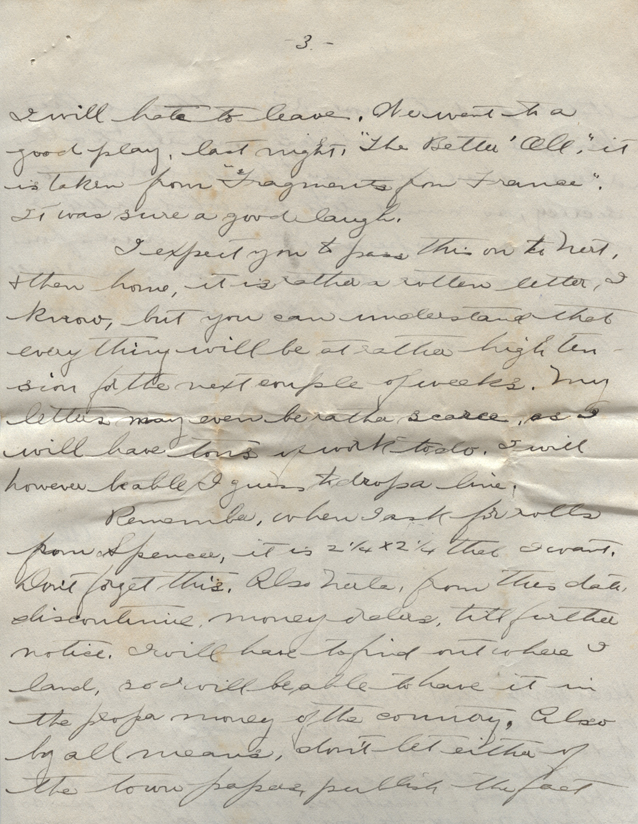 - 3. -
I will hate to leave. We went to a
good play, last night, "The Better 'Ole", it
is taken from "Fragments from France".
It was sure a good laugh.
I expect you to pass this on to Nert,
& then home, it is rather a rotten letter, I
know, but you can understand that
everything will be at rather high ten-
sion for the next couple of weeks. My
letters may even be rather scarce, as I
will have tons of work to do. I will
however be able I guess to drop a line.
Remember, when I ask for rolls
from Spencer, it is 2 1/4 x 2 1/4 that I want.
Don't forget this. Also from this date,
discontinue, money orders, till further
notice. I will have to find out where I
land, so I will be able to have it in
the proper money of the country. Also
by all means, don't let either of
the town papers, publish the fact